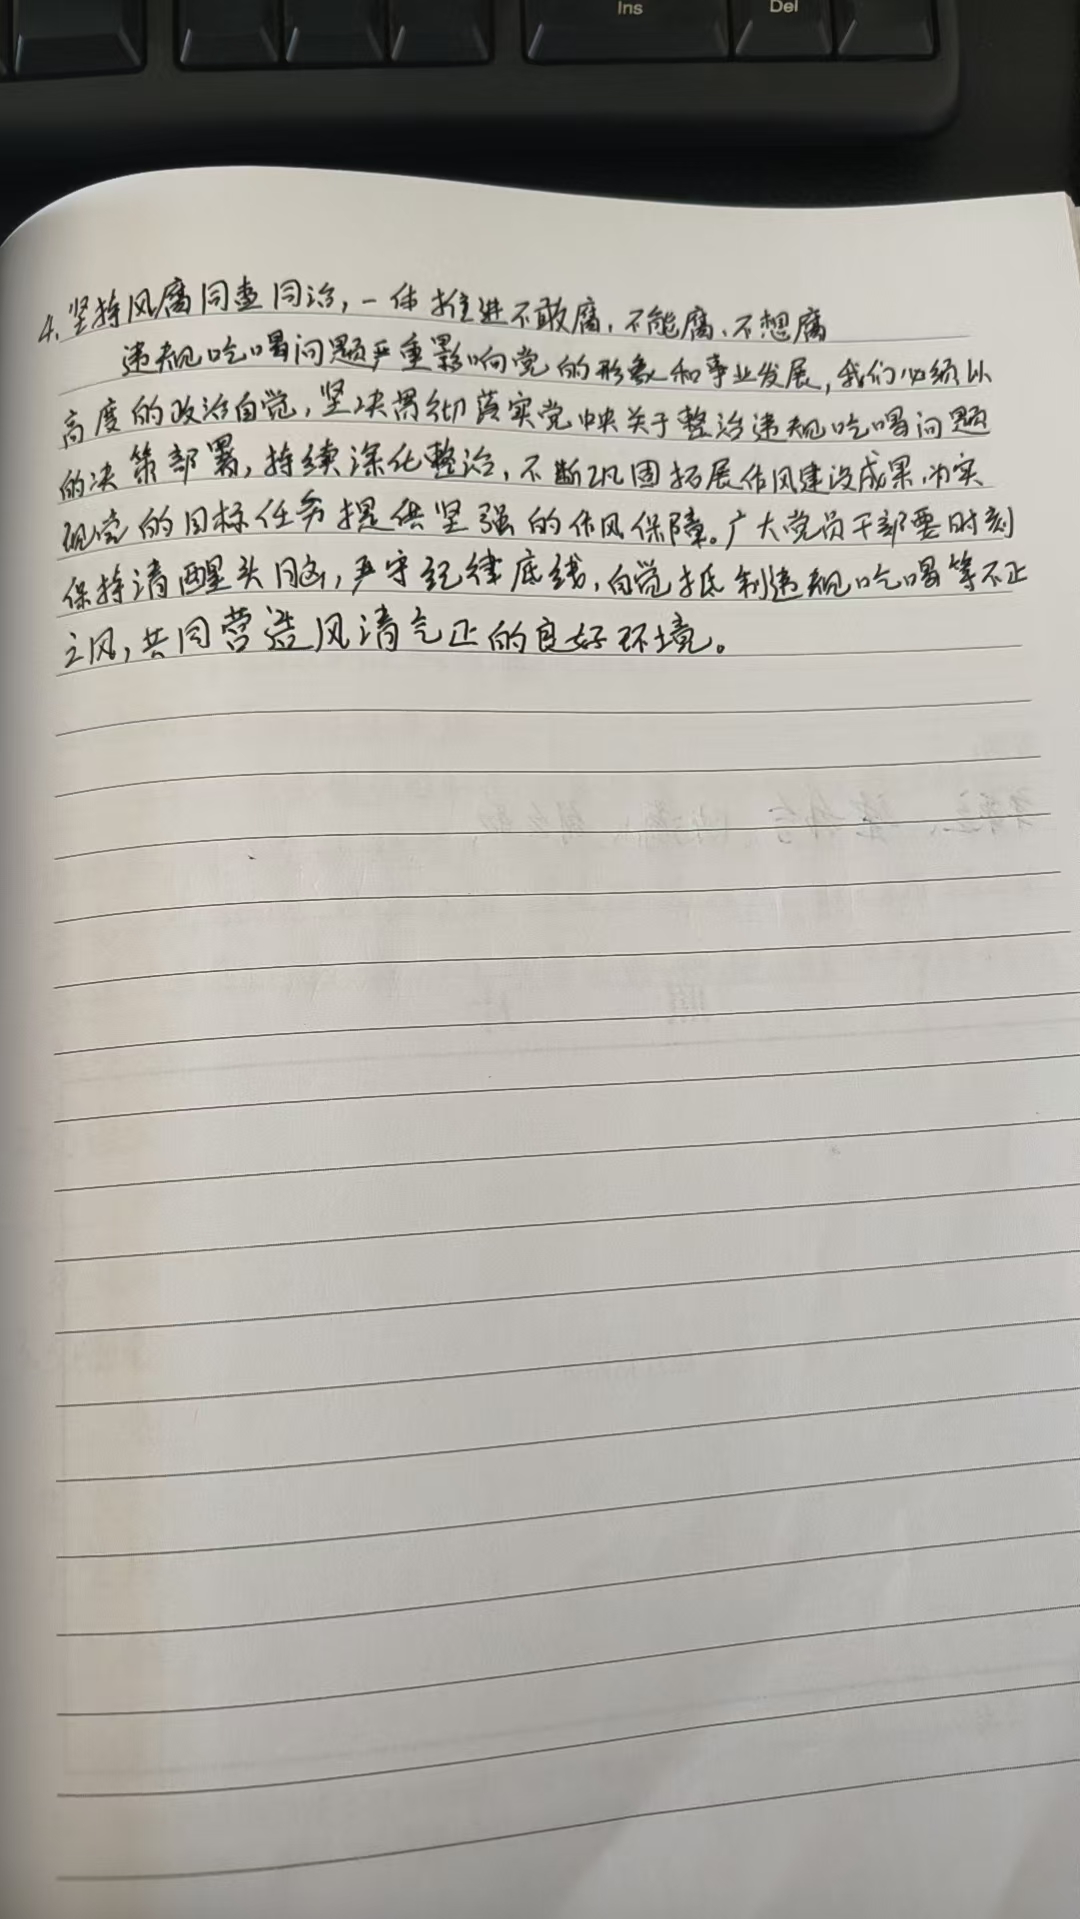 Ins
Del
4.坚持风腐同查同治,一体推进不敢腐、不能腐、不想腐
违规吃喝问题严重影响党的形象和事业发展,我们必须以
高度的政治自觉,坚决贯彻落实党中央关于整治违规吃喝问题
的决策部署,持续深化整治,不断巩固拓展作风建设成果,为实
现党的目标任务提供坚强的作风保障。广大党员干部要时刻
保持清醒头脑,严守纪律底线,自觉抵制违规吃喝等不正
之风,共同营造风清气正的良好环境。